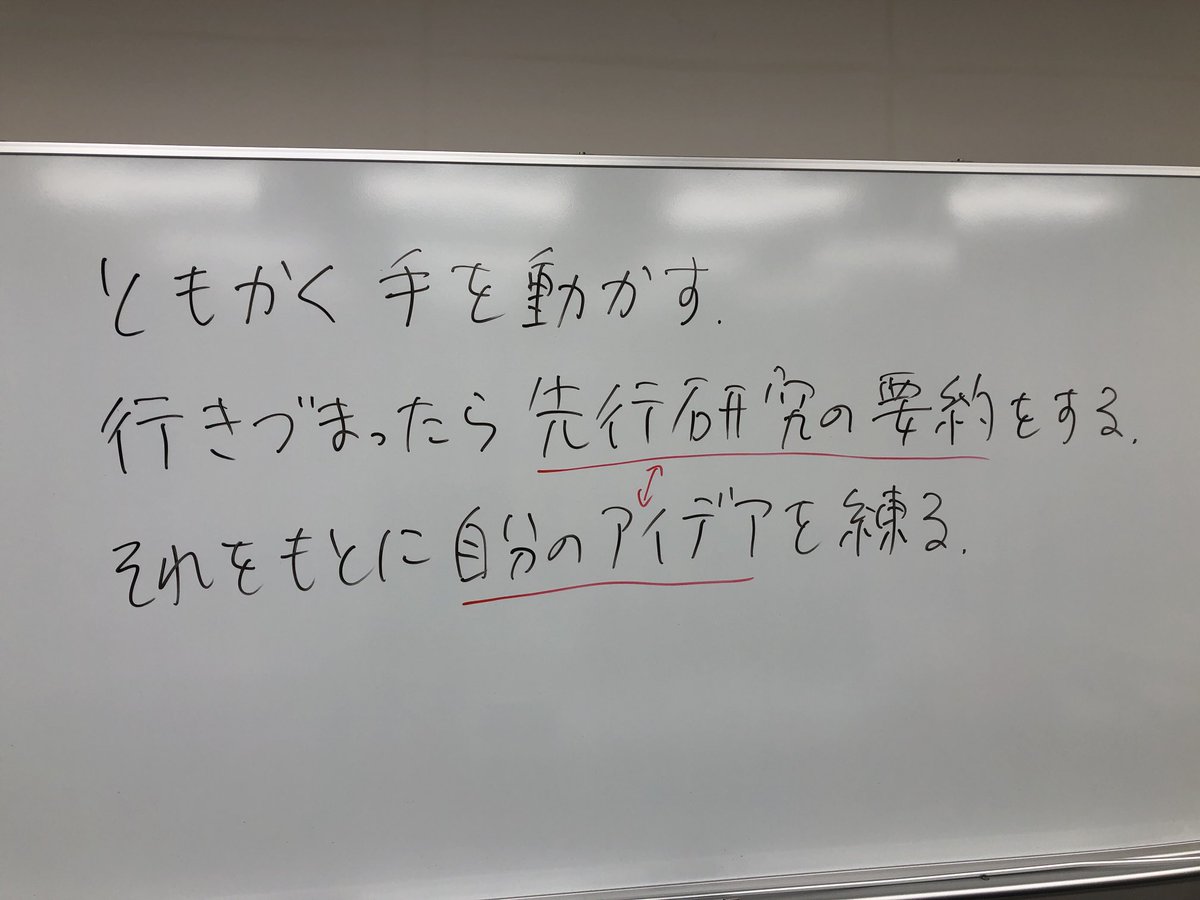 ともかく手を動かす.
行きづまったら先行研究の要約をする.
それをもとに自分のアイデアを練る.